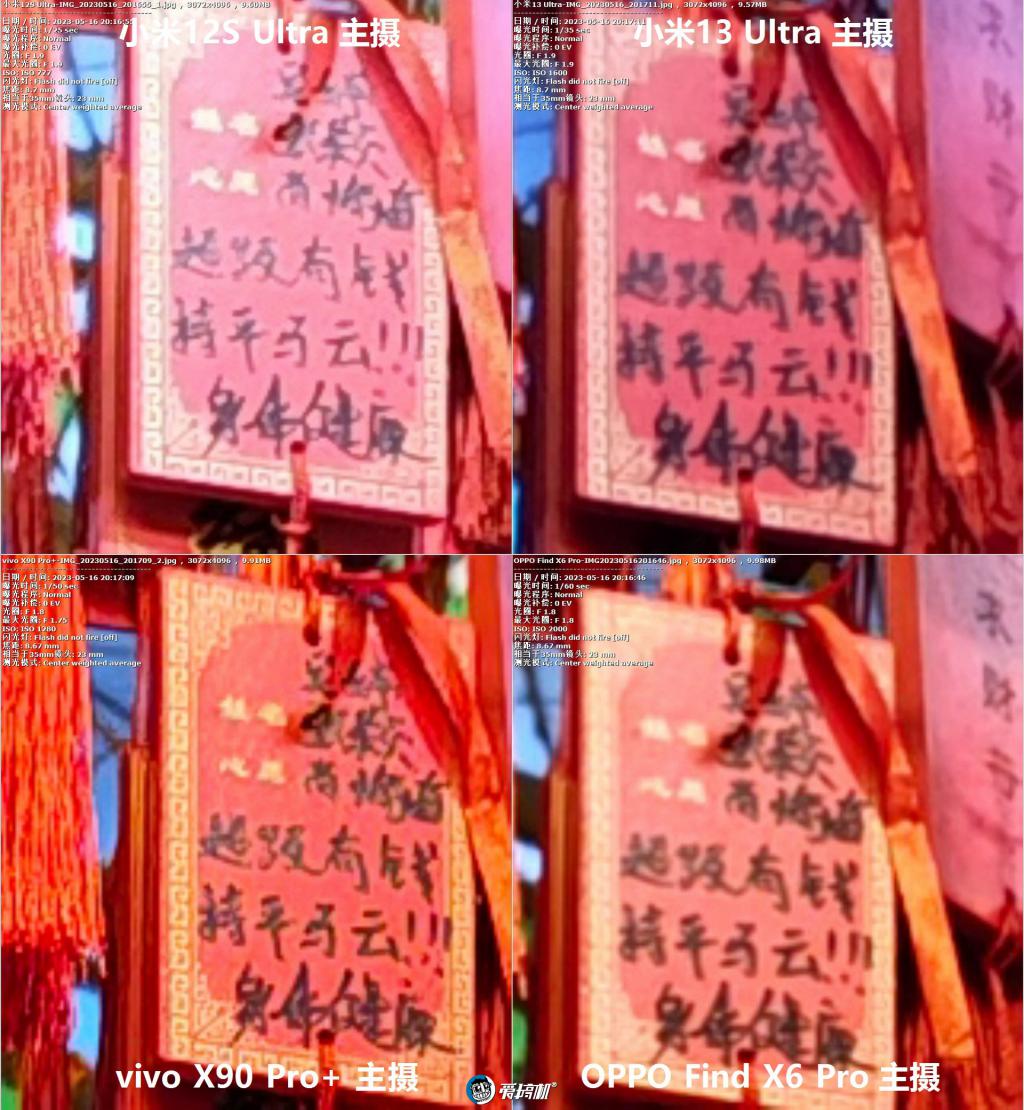 小米12S Ultra-IMG_20230516_201655_1.jpg , 3072x4096 , 9.60MB
日期 / 时间: 2023-05-16 20:16:55
曝光时间: 1/25 sec
曝光程序: Normal
曝光补偿: 0 EV
光圈: F 1.9
最大光圈: F 1.9
ISO: ISO 727
闪光灯: Flash did not fire [off]
焦距: 8.7 mm
相当于35mm镜头: 23 mm
测光模式: Center weighted average
小米12S Ultra 主摄
姓名
心愿
超级有钱
持平马云!!!
身体健康
小米13 Ultra-IMG_20230516_201711.jpg , 3072x4096 , 9.57MB
日期 / 时间: 2023-05-16 20:17:11
曝光时间: 1/35 sec
曝光程序: Normal
曝光补偿: 0 EV
光圈: F 1.9
最大光圈: F 1.9
ISO: ISO 1600
闪光灯: Flash did not fire [off]
焦距: 8.7 mm
相当于35mm镜头: 23 mm
测光模式: Center weighted average
小米13 Ultra 主摄
姓名
心愿
超级有钱
持平马云!!!
身体健康
vivo X90 Pro+-IMG_20230516_201709_2.jpg , 3072x4096 , 9.91MB
日期 / 时间: 2023-05-16 20:17:09
曝光时间: 1/50 sec
曝光程序: Normal
曝光补偿: 0 EV
光圈: F 1.8
最大光圈: F 1.75
ISO: ISO 1280
闪光灯: Flash did not fire [off]
焦距: 8.67 mm
相当于35mm镜头: 23 mm
测光模式: Center weighted average
姓名
心愿
超级有钱
持平马云!!!
身体健康
vivo X90 Pro+ 主摄
OPPO Find X6 Pro-IMG20230516201646.jpg , 3072x4096 , 9.98MB
日期 / 时间: 2023-05-16 20:16:46
曝光时间: 1/60 sec
曝光程序: Normal
曝光补偿: 0 EV
光圈: F 1.8
最大光圈: F 1.8
ISO: ISO 2000
闪光灯: Flash did not fire [off]
焦距: 8.67 mm
相当于35mm镜头: 23 mm
测光模式: Center weighted average
姓名
心愿
超级有钱
持平马云!!!
身体健康
OPPO Find X6 Pro 主摄
爱搞机